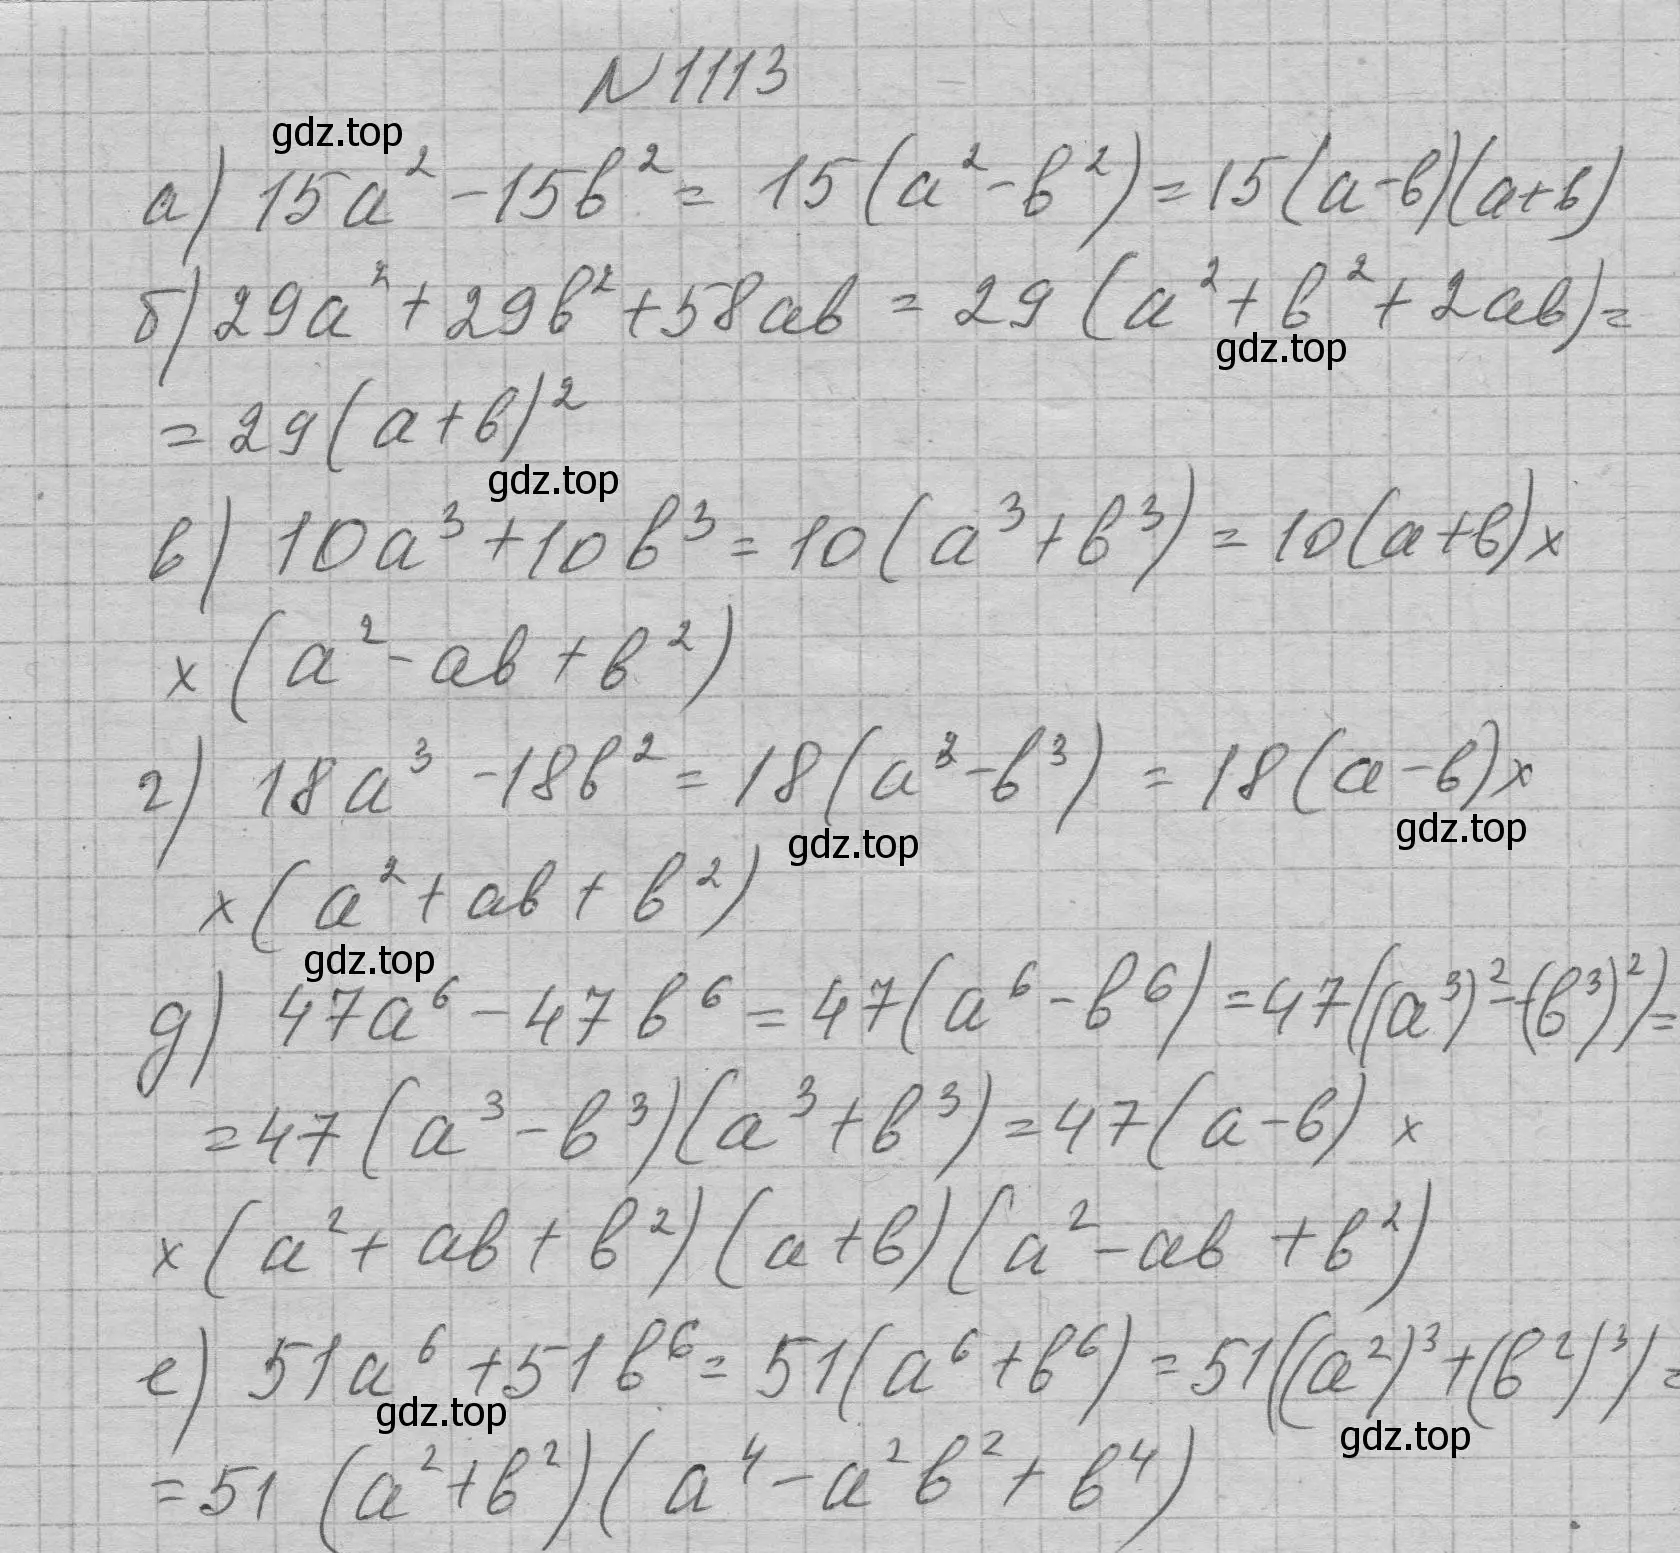 N 1113
gdz.top
а) 15a² - 15b² = 15(a² - b²) = 15(a-b)(a+b)
б) 29a² + 29b² + 58ab = 29(a² + b² + 2ab) =
gdz.top
= 29(a+b)²
gdz.top
в) 10a³ + 10b³ = 10(a³ + b³) = 10(a+b)×
×(a² - ab + b²)
г) 18a³ - 18b² = 18(a³ - b³) = 18(a-b)×
gdz.top gdz.top
×(a² + ab + b²)
gdz.top
д) 47a⁶ - 47b⁶ = 47(a⁶ - b⁶) = 47((a³)² - (b³)²) =
= 47(a³ - b³)(a³ + b³) = 47(a-b)×
×(a² + ab + b²)(a+b)(a² - ab + b²)
е) 51a⁶ + 51b⁶ = 51(a⁶ + b⁶) = 51((a²)³ + (b²)³) =
gdz.top gdz.top
= 51(a² + b²)(a⁴ - a²b² + b⁴)